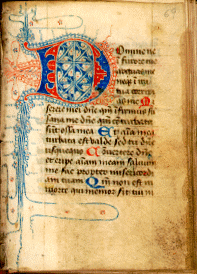 Domine ne
in furore
me
ira
corripi
as me M
serere mei dñe qm̃ infirmus su
sana me dñe qm̃ cõturbata
sũt ossa mea Et aĩa mea
turbata est valde sed tu dñe
usquequo Cõvertere dñe
et eripe aĩam meam salvum
me fac propter misericordi
am tuam Qm̃ non est in
morte qui memor sit tui in